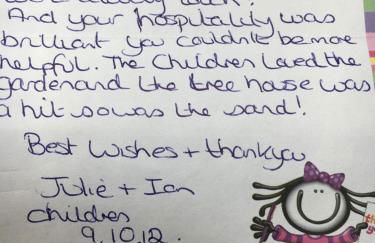 And your hospitality was
brilliant you couldn't be more
helpful. The Children loved the
garden and the tree house was
a hit so was the sand!
Best Wishes + thankyou
Julie + Ian
children
9,10,12.